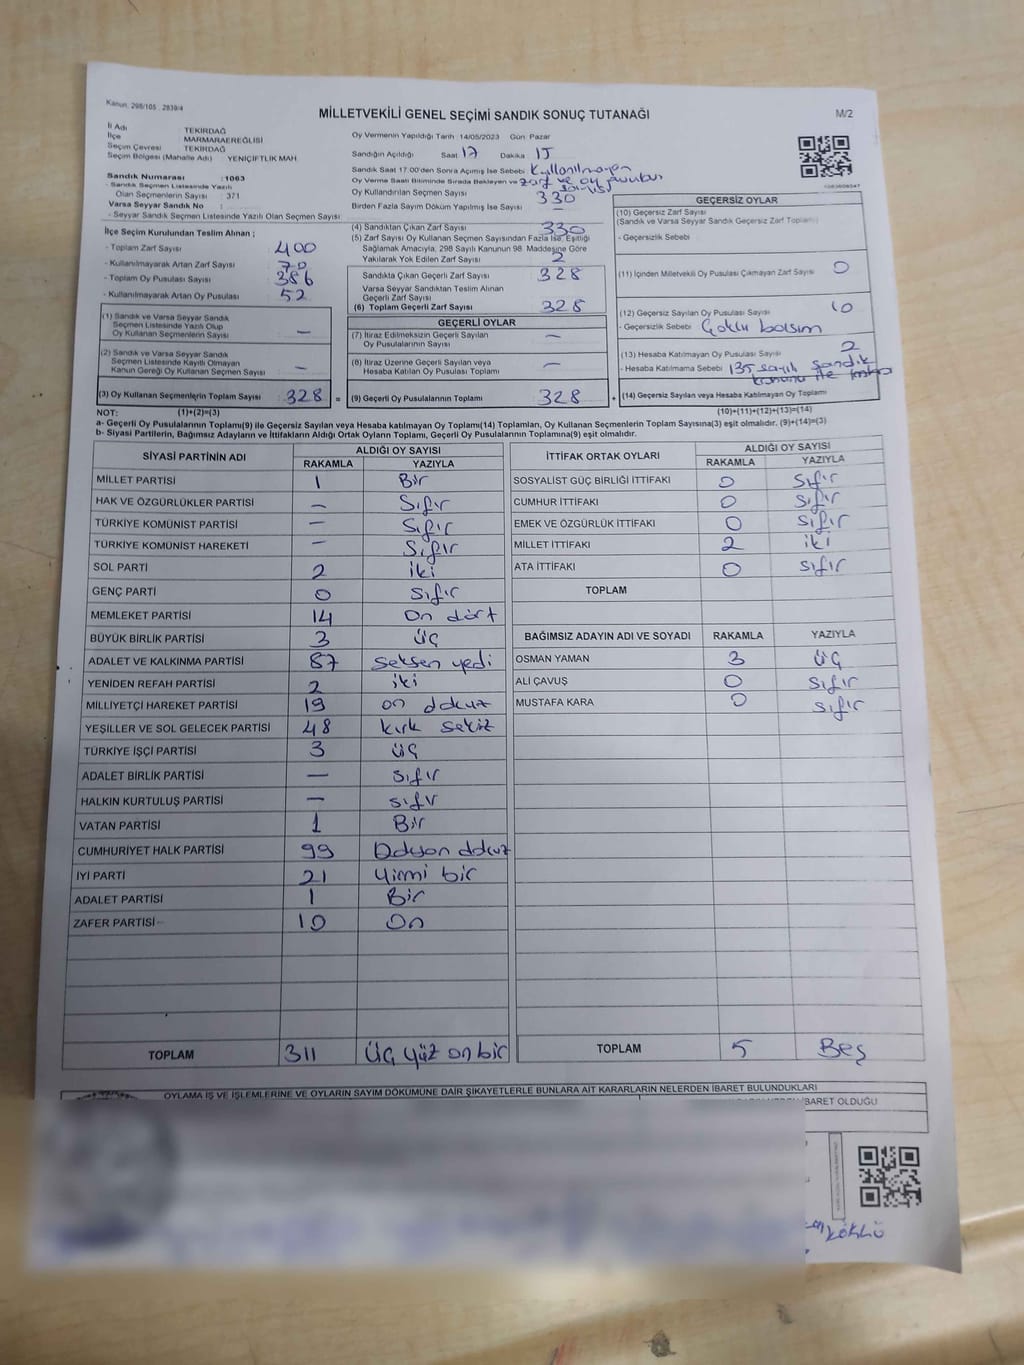 Kanun: 298/105 2839/4
MİLLETVEKİLİ GENEL SEÇİMİ SANDIK SONUÇ TUTANAĞI
M/2
İl Adı TEKİRDAĞ
İlçe MARMARAEREĞLİSİ
Seçim Çevresi TEKİRDAĞ
Seçim Bölgesi (Mahalle Adı) YENİÇİFTLİK MAH.
Sandık Numarası : 1063
- Sandık Seçmen Listesinde Yazılı
Olan Seçmenlerin Sayısı : 371
Varsa Seyyar Sandık No :
- Seyyar Sandık Seçmen Listesinde Yazılı Olan Seçmen Sayısı:
İlçe Seçim Kurulundan Teslim Alınan ;
- Toplam Zarf Sayısı 400
- Kullanılmayarak Artan Zarf Sayısı 70
- Toplam Oy Pusulası Sayısı 386
- Kullanılmayarak Artan Oy Pusulası 52
(1) Sandık ve Varsa Seyyar Sandık
Seçmen Listesinde Yazılı Olup
Oy Kullanan Seçmenlerin Sayısı —
(2) Sandık ve Varsa Seyyar Sandık
Seçmen Listesinde Kayıtlı Olmayan
Kanun Gereği Oy Kullanan Seçmen Sayısı —
(3) Oy Kullanan Seçmenlerin Toplam Sayısı 328 =
Oy Vermenin Yapıldığı Tarih 14/05/2023 Gün Pazar
Sandığın Açıldığı Saat 17 Dakika 15
Sandık Saat 17.00'den Sonra Açılmış İse Sebebi Kullanılmayan
Oy Verme Saati Bitiminde Sırada Bekleyen ve zarf ve oy
Oy Kullandırılan Seçmen Sayısı sayısı
330
Birden Fazla Sayım Döküm Yapılmış İse Sayısı —
(4) Sandıktan Çıkan Zarf Sayısı 330
(5) Zarf Sayısı Oy Kullanan Seçmen Sayısından Fazla İse, Eşitliği
Sağlamak Amacıyla, 298 Sayılı Kanunun 98. Maddesine Göre
Yakılarak Yok Edilen Zarf Sayısı 2
Sandıkta Çıkan Geçerli Zarf Sayısı 328
Varsa Seyyar Sandıktan Teslim Alınan
Geçerli Zarf Sayısı
(6) Toplam Geçerli Zarf Sayısı 328
GEÇERLİ OYLAR
(7) İtiraz Edilmeksizin Geçerli Sayılan
Oy Pusulalarının Sayısı —
(8) İtiraz Üzerine Geçerli Sayılan veya
Hesaba Katılan Oy Pusulası Toplamı —
(9) Geçerli Oy Pusulalarının Toplamı 328 +
GEÇERSİZ OYLAR
(10) Geçersiz Zarf Sayısı
(Sandık ve Varsa Seyyar Sandık Geçersiz Zarf Toplamı)
- Geçersizlik Sebebi
(11) İçinden Milletvekili Oy Pusulası Çıkmayan Zarf Sayısı 0
(12) Geçersiz Sayılan Oy Pusulası Sayısı 10
- Geçersizlik Sebebi Çoklu
(13) Hesaba Katılmayan Oy Pusulası Sayısı 2
- Hesaba Katılmama Sebebi 135 sayılı sandık
kanunu ile
(14) Geçersiz Sayılan veya Hesaba Katılmayan Oy Toplamı
NOT: (1)+(2)=(3) (10)+(11)+(12)+(13)=(14)
a- Geçerli Oy Pusulalarının Toplamı(9) ile Geçersiz Sayılan veya Hesaba katılmayan Oy Toplamı(14) Toplamları, Oy Kullanan Seçmenlerin Toplam Sayısına(3) eşit olmalıdır. (9)+(14)=(3)
b- Siyasi Partilerin, Bağımsız Adayların ve İttifakların Aldığı Ortak Oyların Toplamı, Geçerli Oy Pusulalarının Toplamına(9) eşit olmalıdır.
SİYASİ PARTİNİN ADI ALDIĞI OY SAYISI
RAKAMLA YAZIYLA
MİLLET PARTİSİ 1 Bir
HAK VE ÖZGÜRLÜKLER PARTİSİ — Sıfır
TÜRKİYE KOMÜNİST PARTİSİ — Sıfır
TÜRKİYE KOMÜNİST HAREKETİ — Sıfır
SOL PARTİ 2 iki
GENÇ PARTİ 0 sıfır
MEMLEKET PARTİSİ 14 On dört
BÜYÜK BİRLİK PARTİSİ 3 üç
ADALET VE KALKINMA PARTİSİ 87 seksen yedi
YENİDEN REFAH PARTİSİ 2 iki
MİLLİYETÇİ HAREKET PARTİSİ 19 on dokuz
YEŞİLLER VE SOL GELECEK PARTİSİ 48 kırk sekiz
TÜRKİYE İŞÇİ PARTİSİ 3 üç
ADALET BİRLİK PARTİSİ — sıfır
HALKIN KURTULUŞ PARTİSİ — sıfır
VATAN PARTİSİ 1 Bir
CUMHURİYET HALK PARTİSİ 99 Doksan dokuz
İYİ PARTİ 21 Yirmi bir
ADALET PARTİSİ 1 Bir
ZAFER PARTİSİ 10 On
TOPLAM 311 üç yüz on bir
İTTİFAK ORTAK OYLARI ALDIĞI OY SAYISI
RAKAMLA YAZIYLA
SOSYALİST GÜÇ BİRLİĞİ İTTİFAKI 0 sıfır
CUMHUR İTTİFAKI 0 sıfır
EMEK VE ÖZGÜRLÜK İTTİFAKI 0 sıfır
MİLLET İTTİFAKI 2 iki
ATA İTTİFAKI 0 sıfır
TOPLAM
BAĞIMSIZ ADAYIN ADI VE SOYADI RAKAMLA YAZIYLA
OSMAN YAMAN 3 üç
ALİ ÇAVUŞ 0 sıfır
MUSTAFA KARA 0 sıfır
TOPLAM 5 Beş
OYLAMA İŞ VE İŞLEMLERİNE VE OYLARIN SAYIM DÖKÜMÜNE DAİR ŞİKAYETLERLE BUNLARA AİT KARARLARIN NELERDEN İBARET BULUNDUKLARI
İBARET OLDUĞU